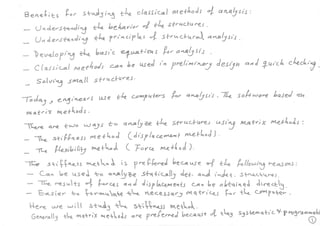 Benefits for studying the classical methods of analysis:
– Understanding the behavior of the structures.
– Understanding the principles of structural analysis.
– Developing the basic equations for analysis.
– Classical methods can be used in preliminary design and quick checking.
– Solving small structures.
Today, engineers use the computers for analysis. The software based on
matrix methods.
There are two ways to analyze the structures using matrix methods:
– The stiffness method (displacement method).
– The flexibility method (Force method).
The stiffness method is preffered because of the following reasons:
– Can be used to analyze statically det. and indet. structures.
– The results of forces and displacements can be obtained directly.
– Easier to formulate the necessary matrices for the computer.
Here we will study the stiffness method.
Generally the matrix methods are preferred because of they systematic & programmable
1